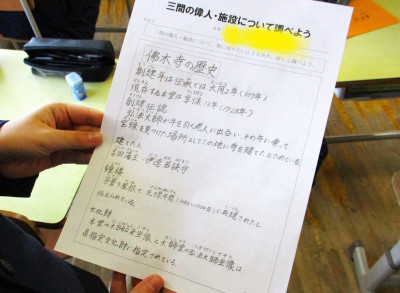 三間の偉人・施設について調べよう
佛木寺の歴史
創建年は伝承では大同2年(807年)
現存する本堂は享保13年(1728年)
創建伝説
弘法大師が牛を引く老人に出合い、その牛に乗って
宝珠を見つけた場所としてこの地に寺を建てたとされている
建てた人
吉田藩主・伊達若狭守
鐘楼
茅葺き屋根で元禄年間(1688〜1704年)に再建されたと
伝えられている
文化財
本堂の大日如来坐像と大師堂の弘法大師坐像は
県指定文化財に指定されている